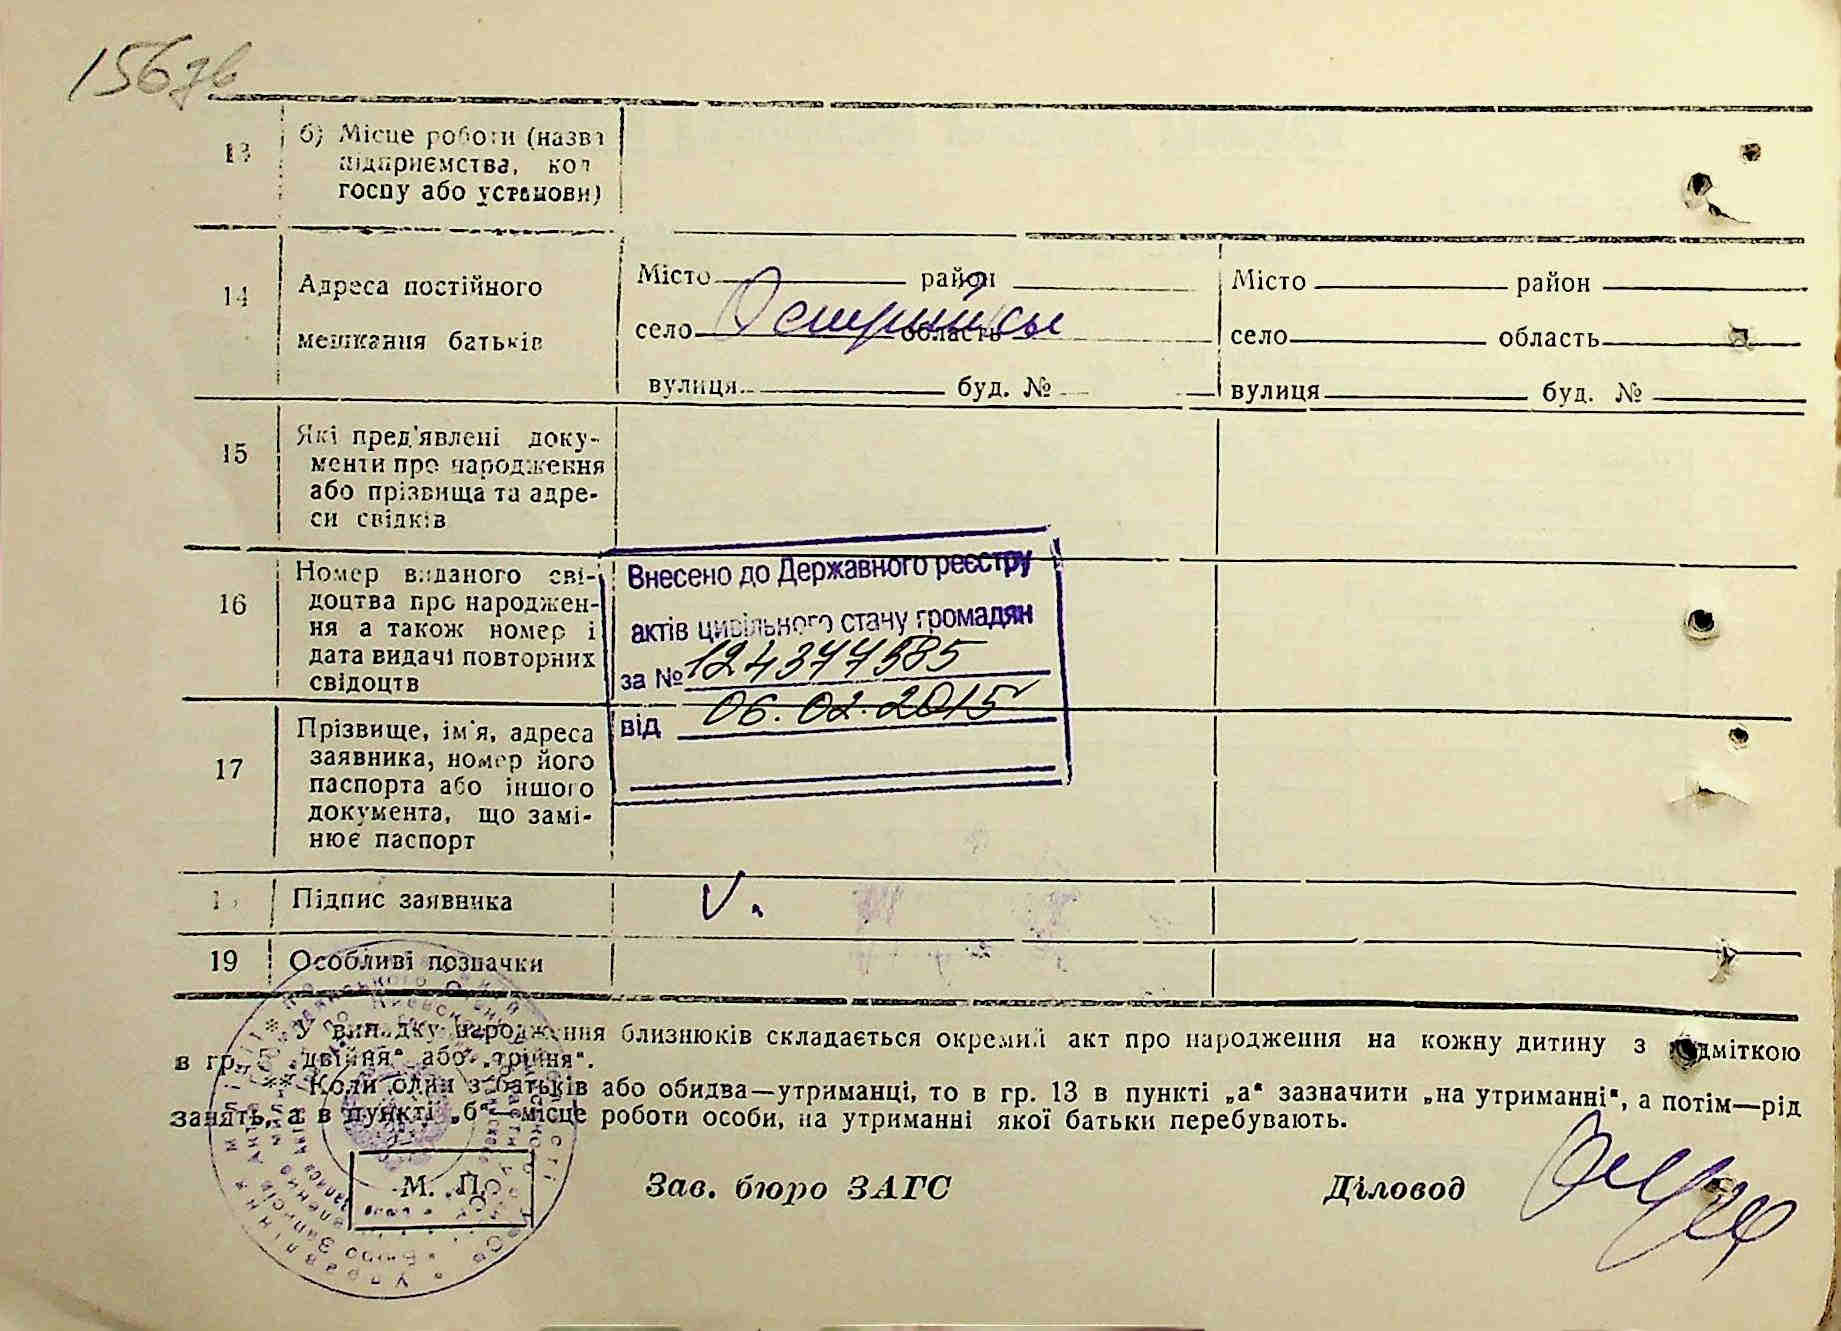 156зв
13
б) Місце роботи (назва
підприємства, кол
госпу або установи)
14
Адреса постійного
мешкання батьків
Місто район
село область
вулиця буд. №
Місто район
село область
вулиця буд. №
15
Які пред'явлені доку-
менти про народження
або прізвища та адре-
си свідків
16
Номер виданого сві-
доцтва про народжен-
ня а також номер і
дата видачі повторних
свідоцтв
Внесено до Державного реєстру
актів цивільного стану громадян
за № 124377585
від 06.02.2015
17
Прізвище, ім'я, адреса
заявника, номер його
паспорта або іншого
документа, що замі-
нює паспорт
Підпис заявника
V.
19
Особливі позначки
У випадку народження близнюків складається окремий акт про народження на кожну дитину з підміткою
в гр. 5 „двійня“ або „трійня“.
Коли один з батьків або обидва—утриманці, то в гр. 13 в пункті „а“ зазначити „на утриманні“, а потім—рід
занять, а в пункті „б“—місце роботи особи, на утриманні якої батьки перебувають.
М. П.
Зав. бюро ЗАГС
Діловод